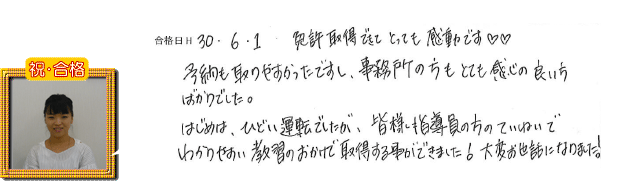 合格日H 30.6.1 免許取得できて とっても 感動です♡♡
祝・合格
予約も取りやすかったですし、事務所の方もとても感じの良い方
ばかりでした。
はじめは、ひどい運転でしたが、皆様指導員の方のていねいで
わかりやすい教習のおかげで取得する事ができました!大変お世話になりました!